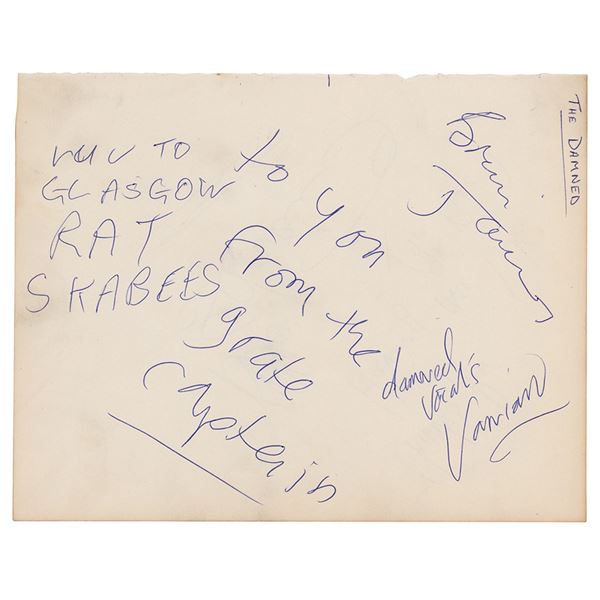 TO
GLASGOW
RAT
SKABEES
to you
from the
grate
captain
Brian
James
damned
vocal's
Vanian
THE DAMNED